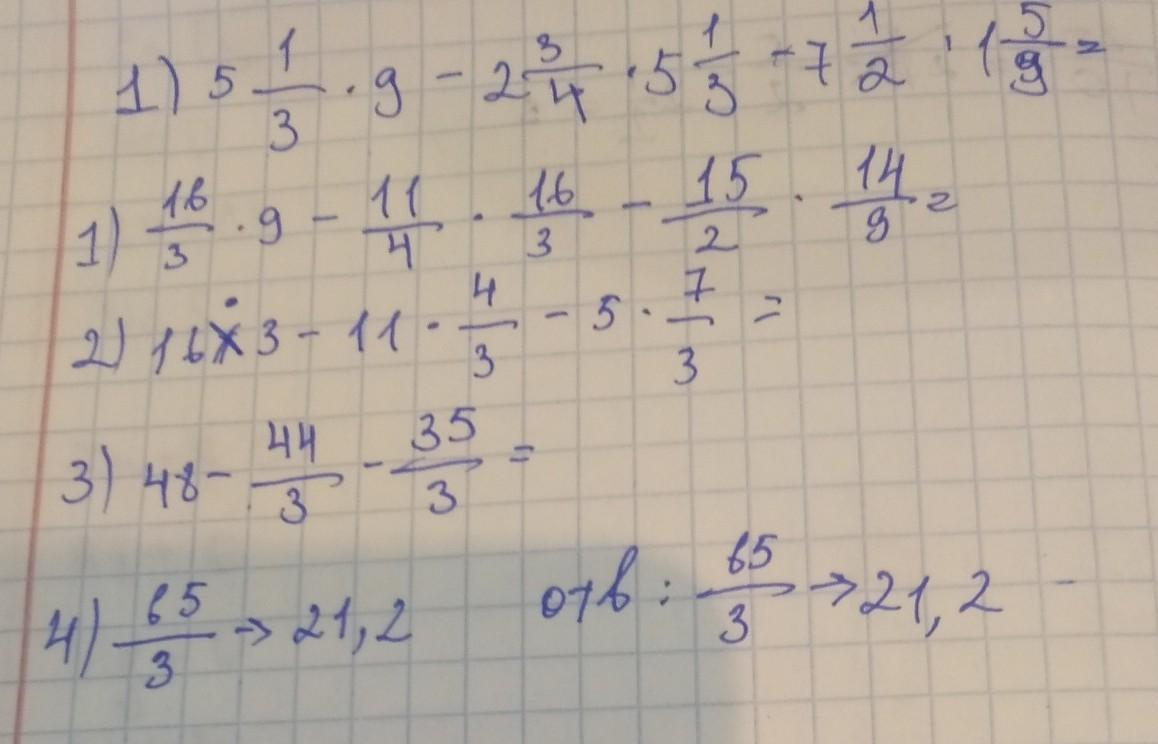 1) 5 1/3 · 9 - 2 3/4 · 5 1/3 - 7 1/2 · 1 5/9 =
1) 16/3 · 9 - 11/4 · 16/3 - 15/2 · 14/9 =
2) 16 · 3 - 11 · 4/3 - 5 · 7/3 =
3) 48 - 44/3 - 35/3 =
4) 65/3 → 21,2 отв : 65/3 → 21,2